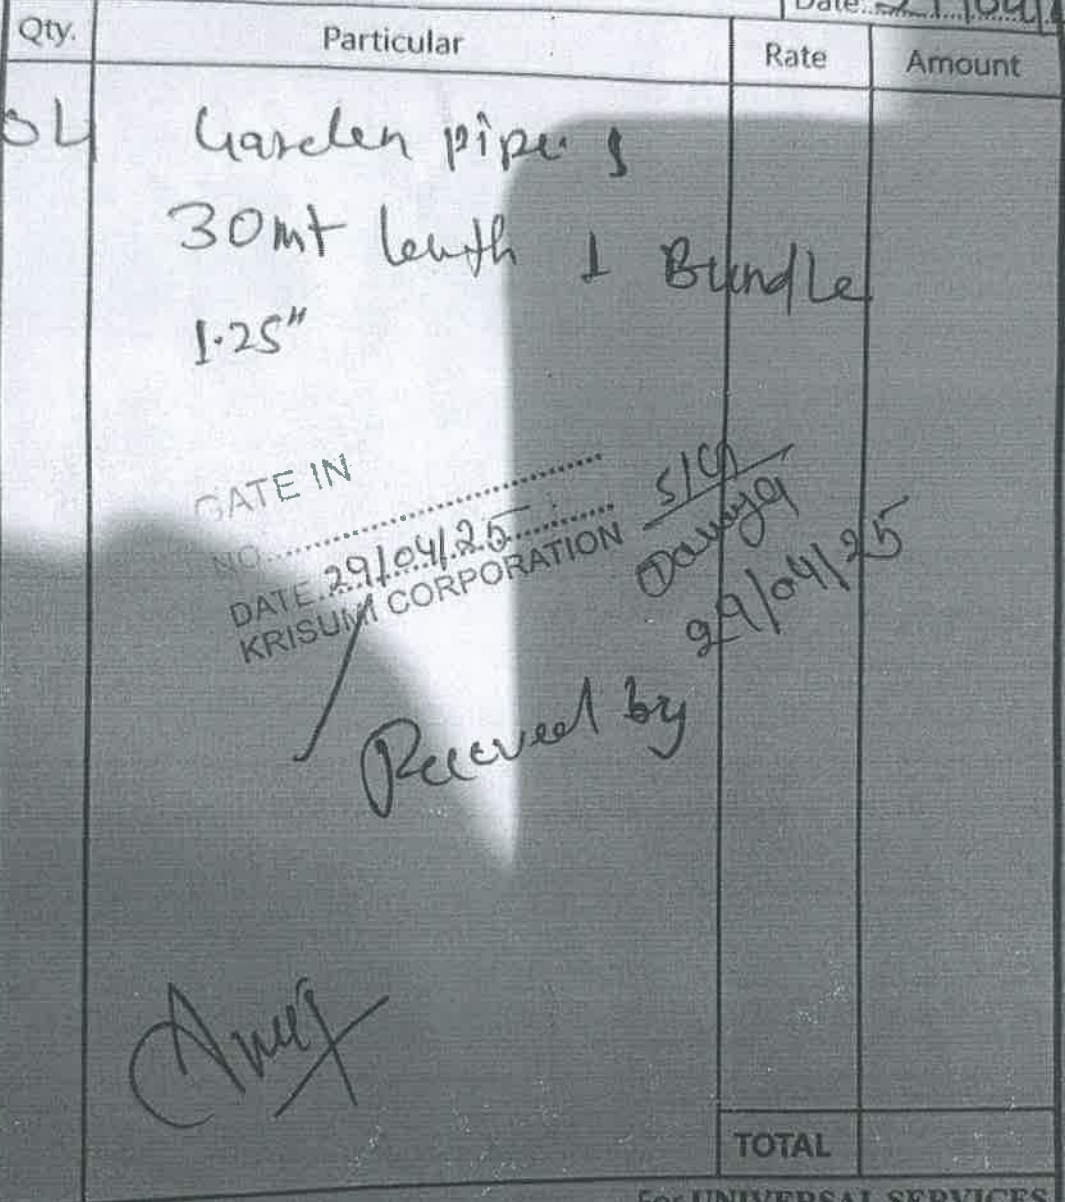 Date
Qty. Particular Rate Amount
Garden pipe
30mt lenth 1 Bundle
1.25"
GATE IN
NO
DATE 29/04/25
KRISUMI CORPORATION
S/G
29/04/25
Received by
TOTAL
For UNIVERSAL SERVICES